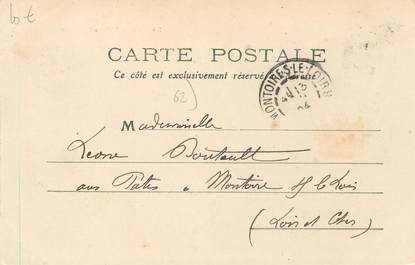 10 €
CARTE POSTALE
Ce côté est exclusivement réservé à l'adresse
MONTOIRE-S-LE-LOIR
13
04
62
Mademoiselle
Boutault
aux à Montoire s/ le Loir
(Loir et Cher)